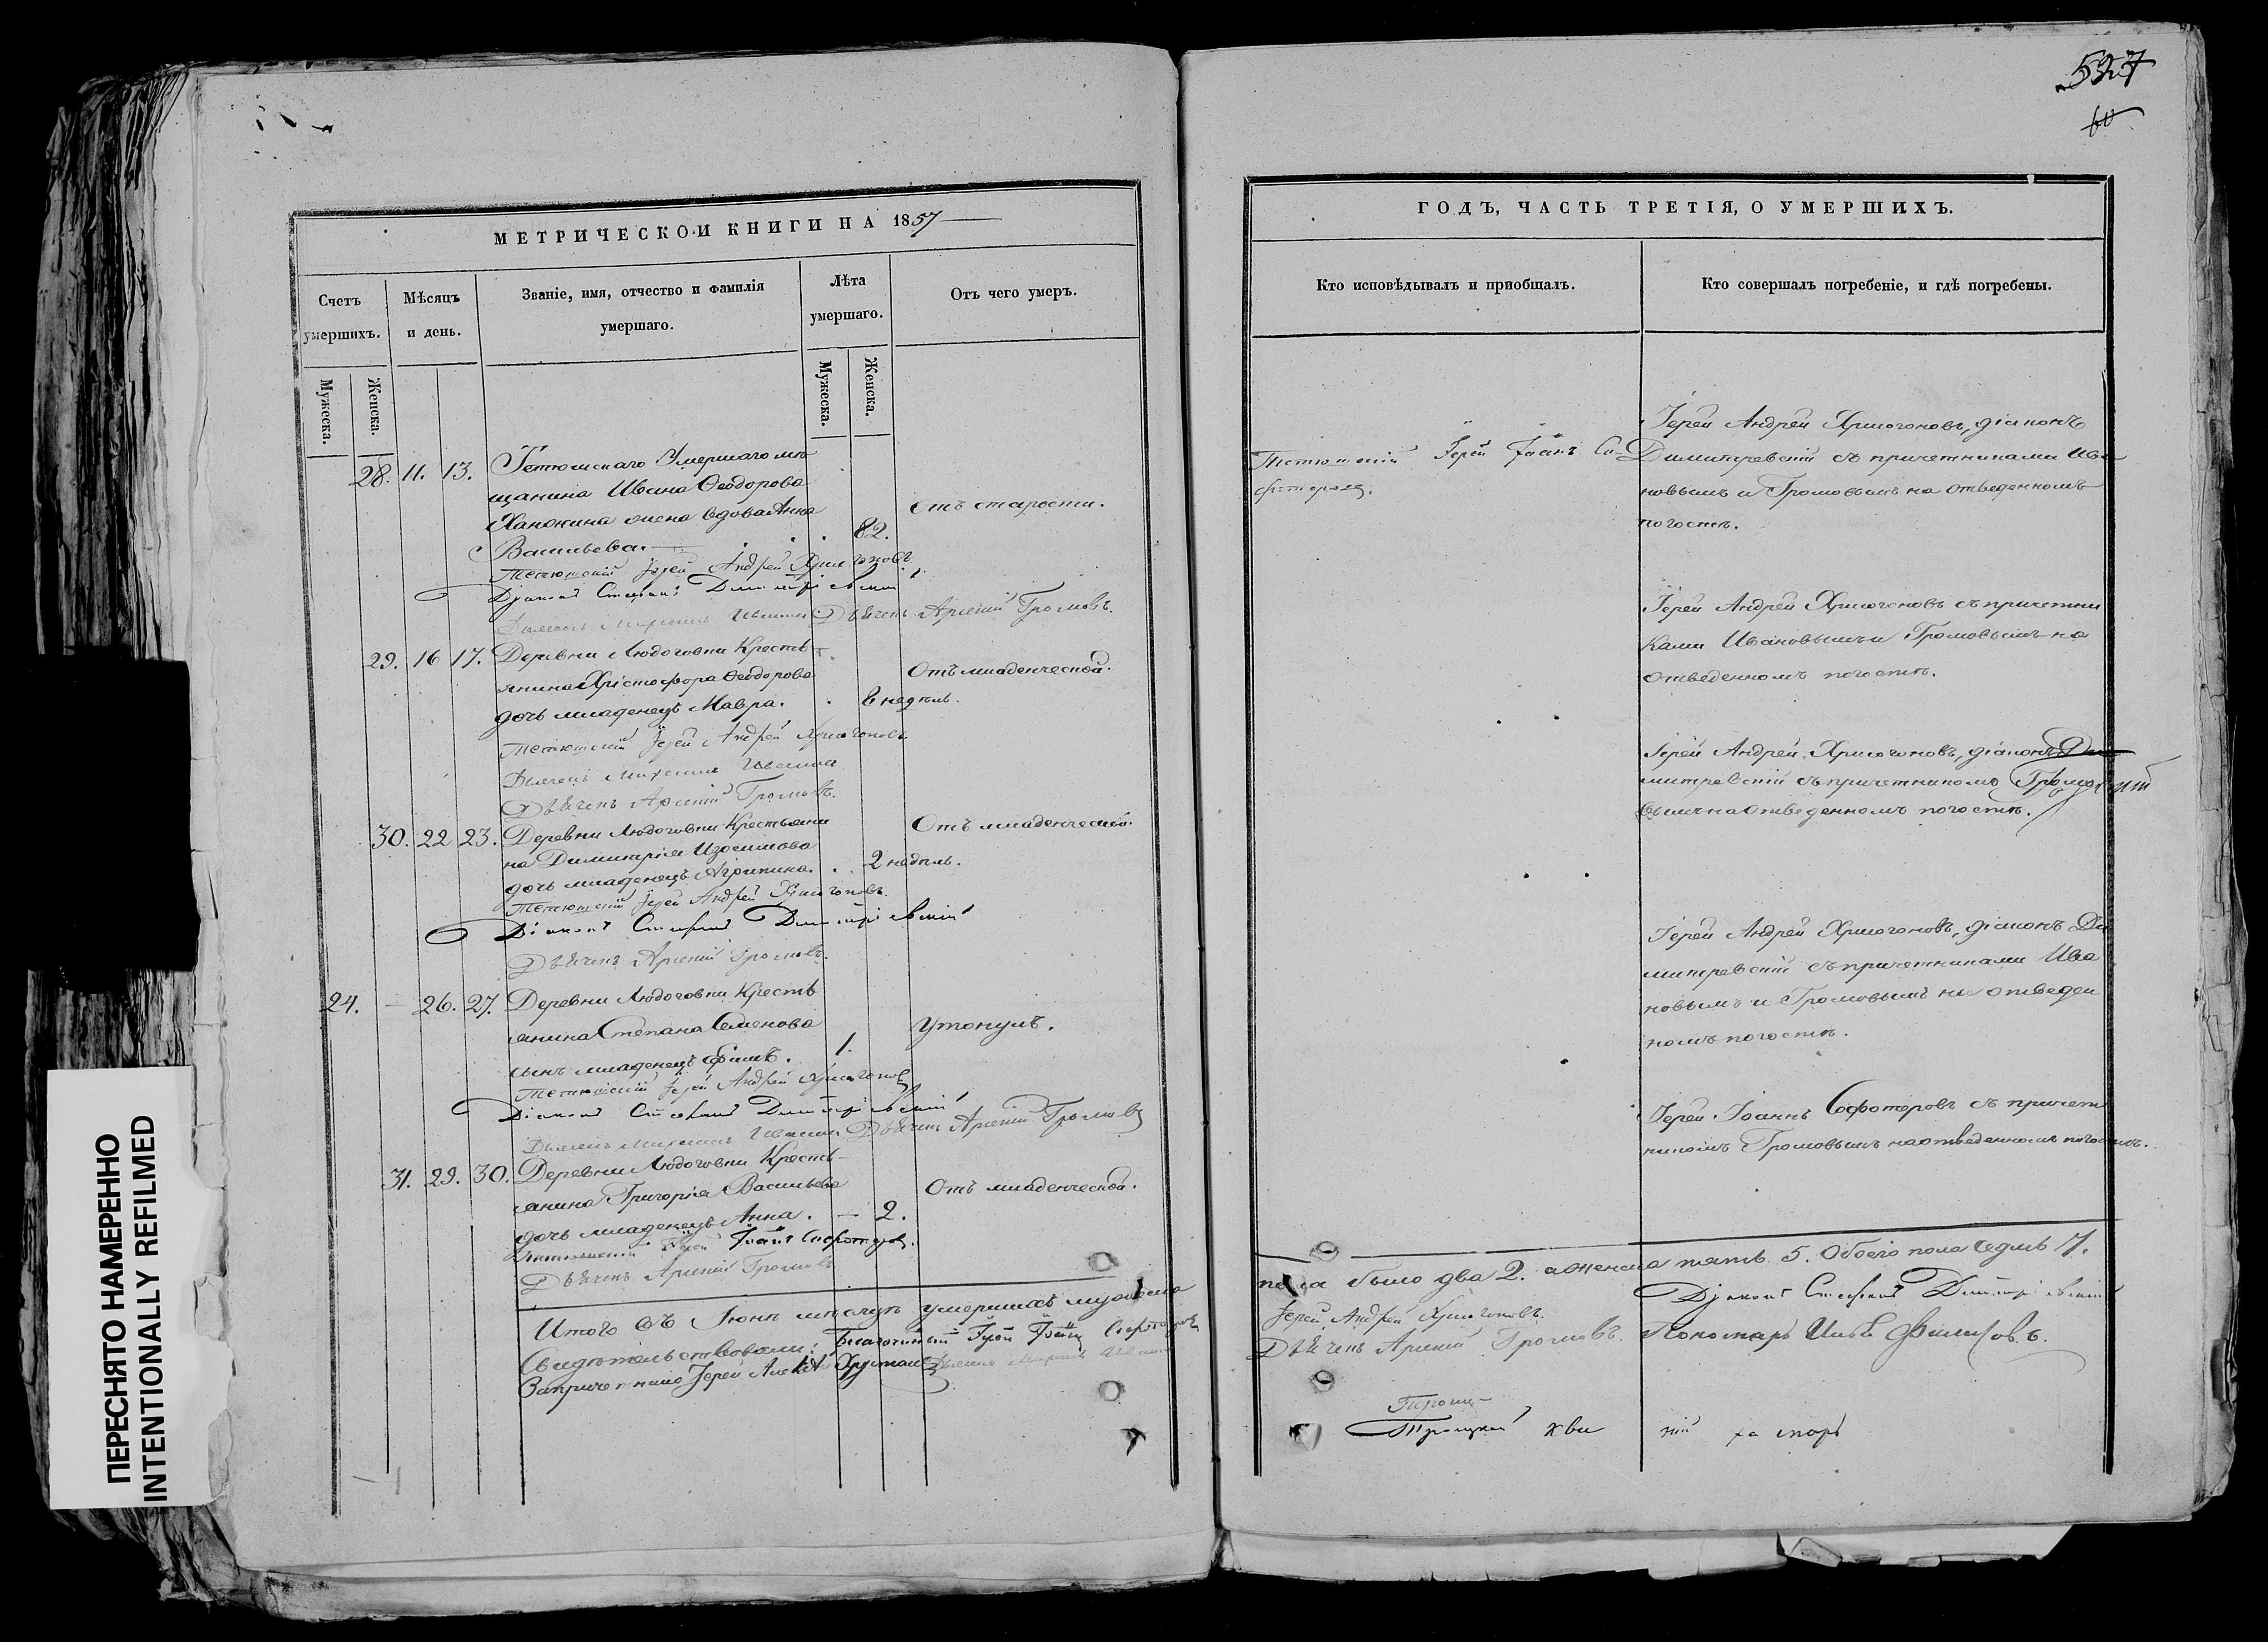 527
МЕТРИЧЕСКОЙ КНИГИ НА 1857
Счетъ умершихъ.
Мѣсяцъ и день.
Званіе, имя, отчество и фамилія умершаго.
Лѣта умершаго.
Отъ чего умеръ.
Мужеска.
Женска.
Мужеска.
Женска.
28. 11. 13. Тетюшскаго Умершаго мѣ
щанина Ивана Ѳеодорова
жена вдова Анна
Васильева. 82.
отъ старости.
Тетюшскій Іерей Андрей Хрисогоновъ
Діаконъ Стефанъ Димитріевскій
Дьячекъ Арсеній Громовъ.
29. 16 17. Деревни Людоговки Кресть
янина Христофора Ѳеодорова
дочь младенецъ Мавра. 6 недѣль.
Отъ младенческой.
Тетюшскій Іерей Андрей Хрисогоновъ
Дьячекъ Арсеній Громовъ.
30. 22 23. Деревни Людоговки Крестьяни
на Димитрія Изосимова
дочь младенецъ Агрипина. 2 недѣль.
Отъ младенческой.
Тетюшскій Іерей Андрей Хрисогоновъ.
Діаконъ Стефанъ Димитріевскій
Дьячекъ Арсеній Громовъ.
24. — 26. 27. Деревни Людоговки Кресть
янина Степана Семенова
сынъ младенецъ 1.
Утонулъ.
Тетюшскій Іерей Андрей Хрисогоновъ
Діаконъ Стефанъ Димитріевскій
Дьячекъ Арсеній Громовъ
31. 29. 30. Деревни Людоговки Кресть-
янина Григорія Васильева
дочь младенецъ Анна. — 2.
Отъ младенческой.
Тетюшскій Іерей Іоаннъ Софотеровъ.
Дьячекъ Арсеній Громовъ
Итого въ Іюнѣ мѣсяцѣ умершихъ мужеска
Свидѣтельствовали: Благочинный Іерей Іоаннъ Софотеровъ
Іерей
ГОДЪ, ЧАСТЬ ТРЕТІЯ, О УМЕРШИХЪ.
Кто исповѣдывалъ и пріобщалъ.
Кто совершалъ погребеніе, и гдѣ погребены.
Тетюшскій Іерей Іоаннъ Со-
фотеровъ.
Іерей Андрей Хрисогоновъ, діаконъ
Димитревскій съ причетниками Ива
новымъ и Громовымъ на отведенномъ
погостѣ.
Іерей Андрей Хрисогоновъ съ причетни
ками Ивановымъ и Громовымъ на
отведенномъ погостѣ.
Іерей Андрей Хрисогоновъ, діаконъ Ди
митревскій съ причетникомъ Громо
вымъ на отведенномъ погостѣ.
Іерей Андрей Хрисогоновъ, діаконъ Ди
митревскій съ причетниками Ива
новымъ и Громовымъ на отведен
номъ погостѣ.
Іерей Іоаннъ Софотеровъ съ причет
никомъ Громовымъ на отведенномъ погостѣ.
пола было два 2. а женска пять 5. Обоего пола седмь 7.
Іерей Андрей Хрисогоновъ. Діаконъ Стефанъ Димитріевскій
Дьячекъ Арсеній Громовъ. Пономарь Филиповъ.
ПЕРЕСНЯТО НАМЕРЕННО
INTENTIONALLY REFILMED